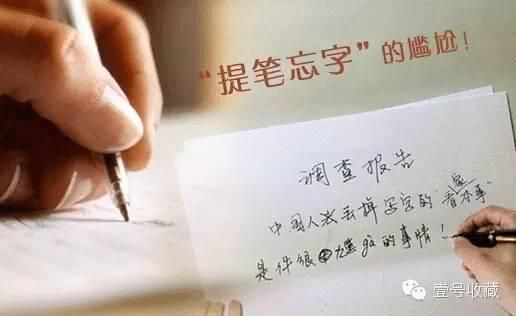 “提笔忘字”的尴尬！
调查报告
中国人丢掉写字的“看家本事”
是件很尴尬的事情！
壹号收藏